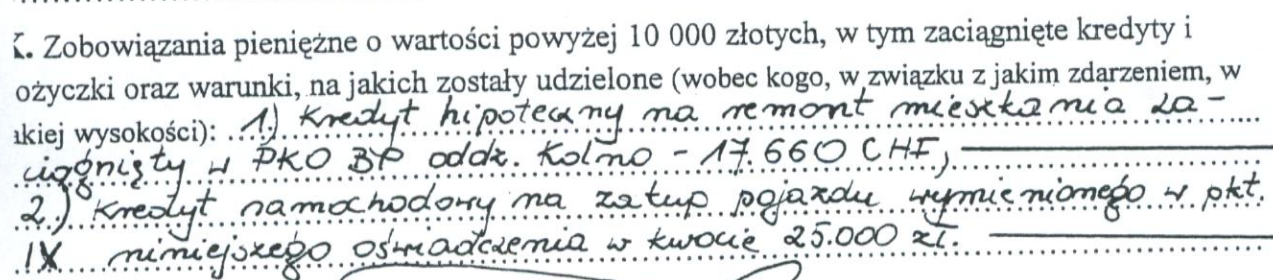 X. Zobowiązania pieniężne o wartości powyżej 10 000 złotych, w tym zaciągnięte kredyty i
ożyczki oraz warunki, na jakich zostały udzielone (wobec kogo, w związku z jakim zdarzeniem, w
akiej wysokości): 1) Kredyt hipoteczny na remont mieszkania za-
ciągnięty w PKO BP oddz. Kolno - 17.660 CHF,
2.) Kredyt samochodowy na zakup pojazdu wymienionego w pkt.
IX niniejszego oświadczenia w kwocie 25.000 zł.